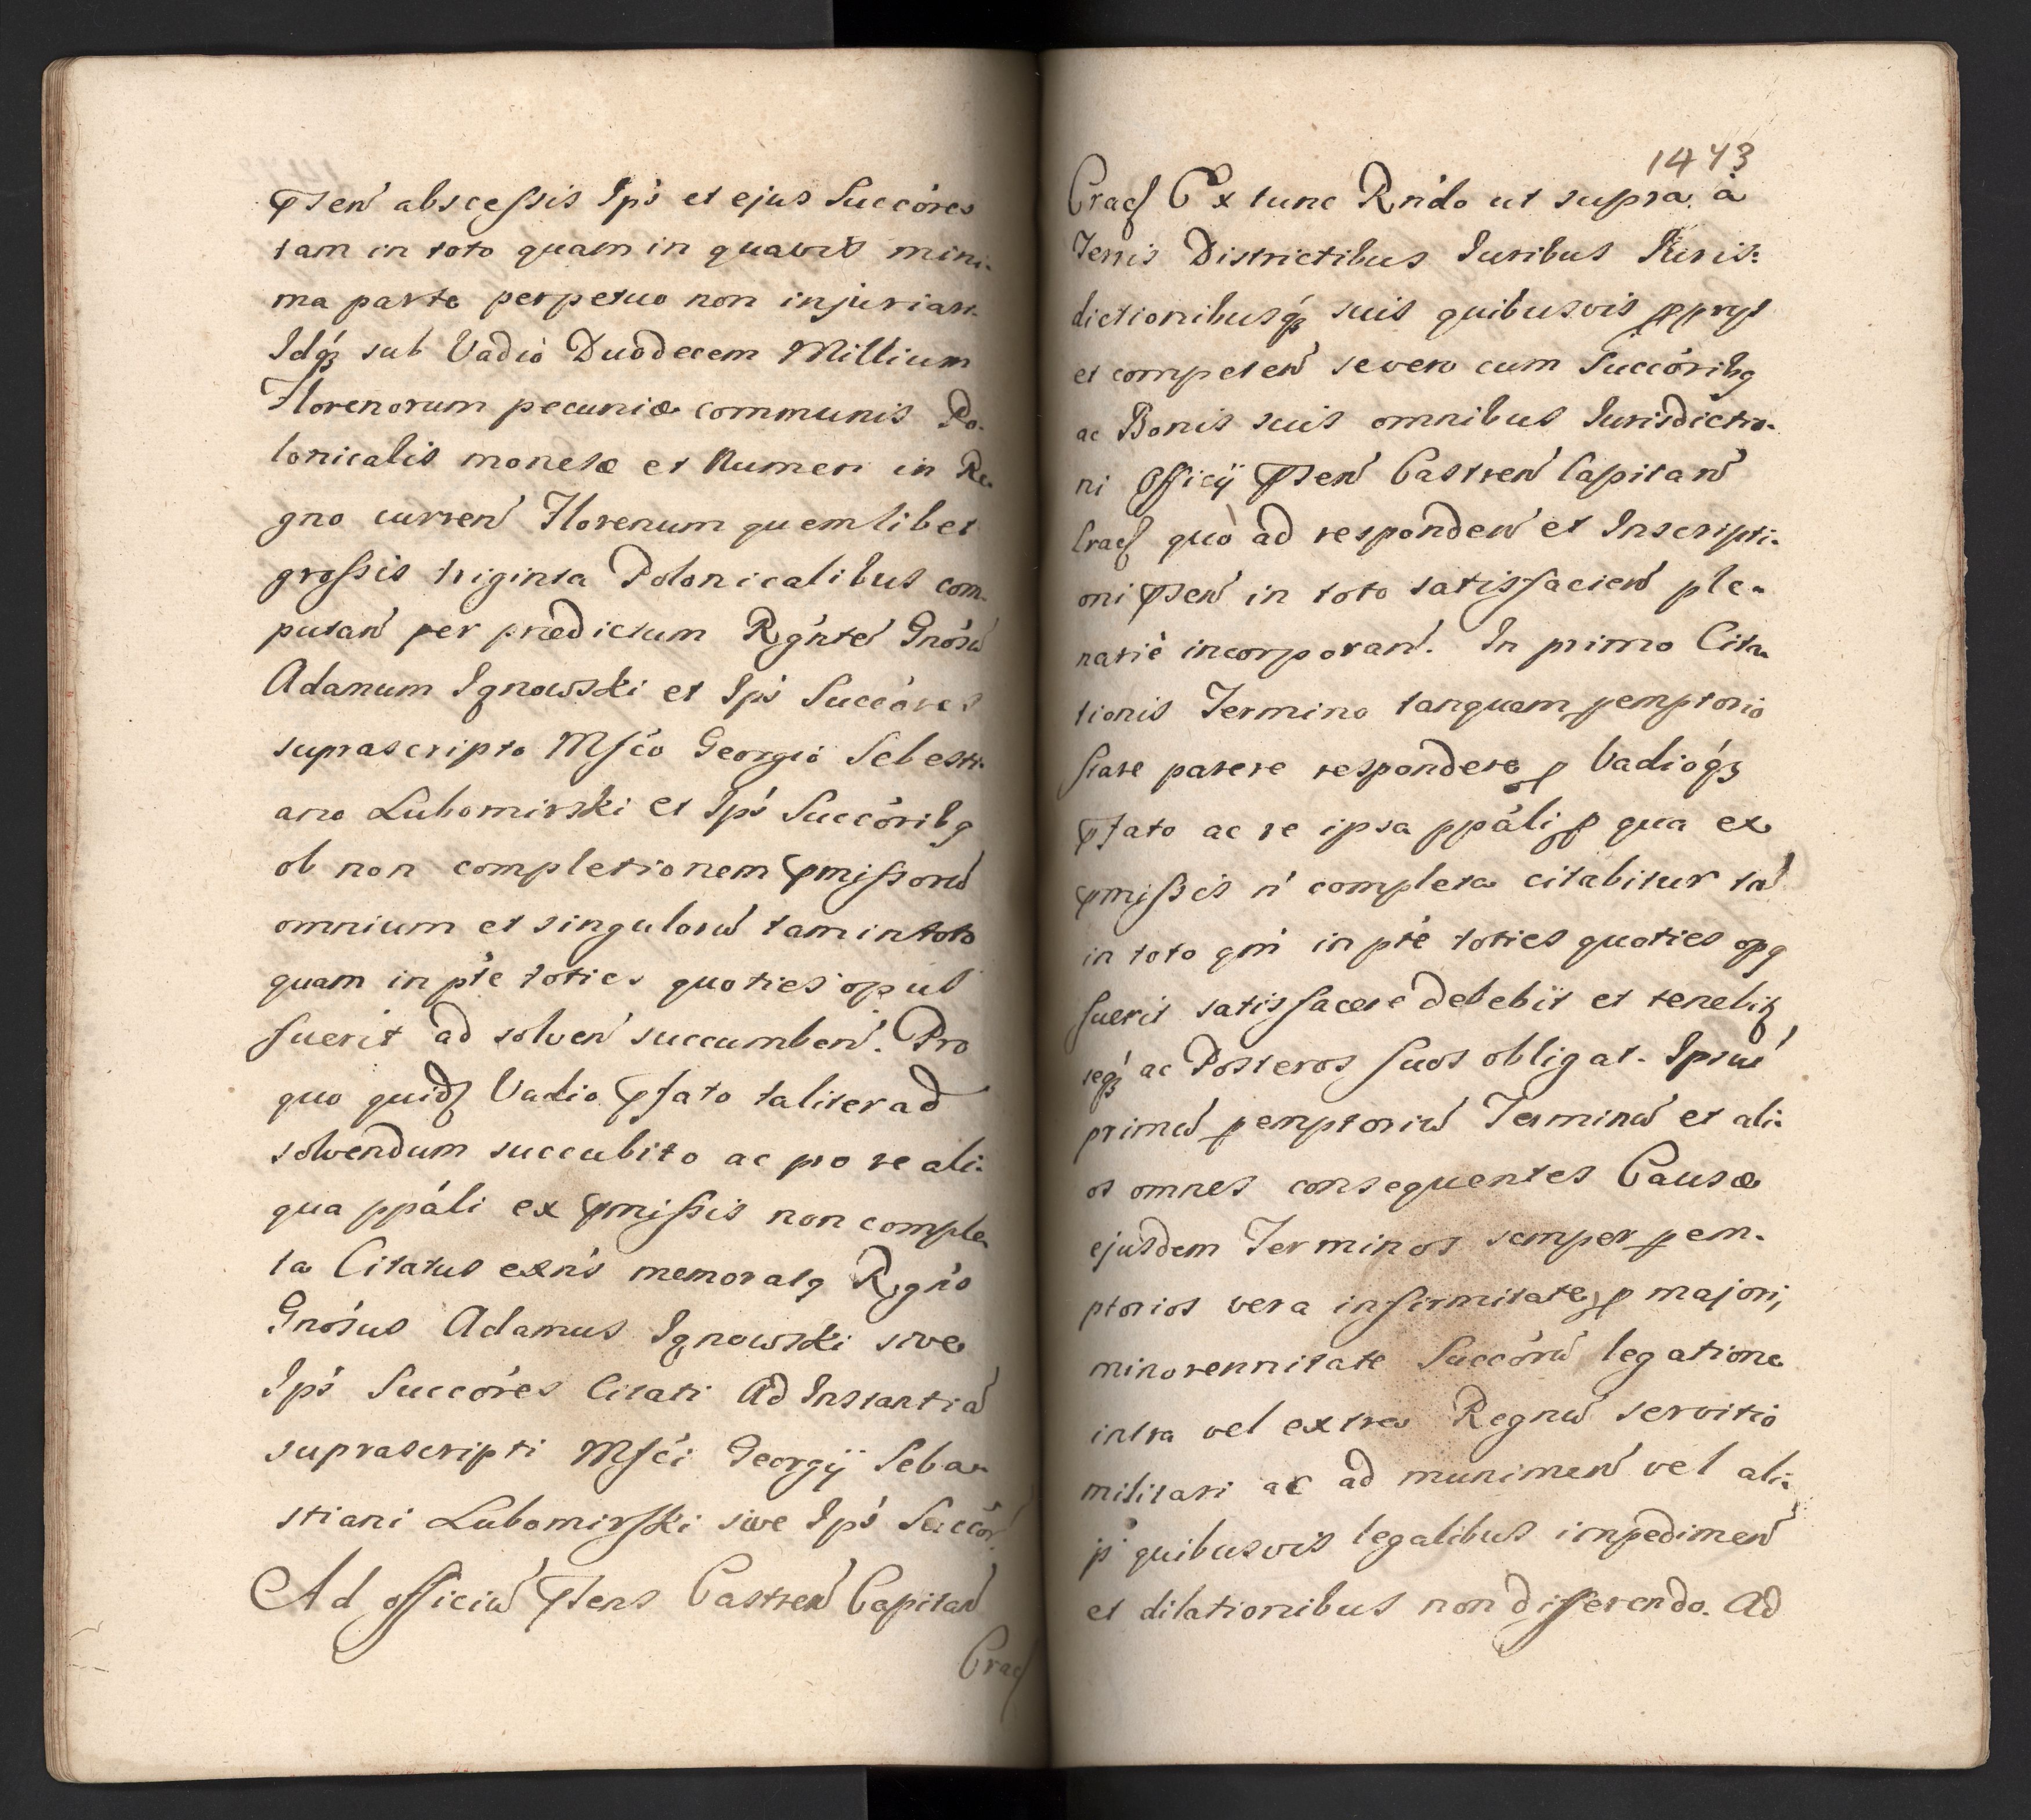 pſsen abscessis Ips et ejus Succores
tam in toto quam in quavis mini-
ma parte perpetuo non injuriari.
Idq́ꝫ sub Vadio Duodecem Millium
Florenorum pecuniæ communis Po-
lonicalis monetæ et Numeri in Re-
gno curren Florenum quemlibet
grossis triginta Polonicalibus com-
putan per prædictum Rgnte Gnosu
Adamum Ignowski et Ips Succores
suprascripto Mfco Georgio Sebesti-
ano Lubomirski et Ips Succoribꝗ
ob non completionem pmissoru
omnium et singuloru tam in toto
quam in pte toties quoties opus
fuerit ad solven succumben. Pro
quo quidꝫ Vadio pfato taliter ad
solvendum succubito ac pro re ali-
qua ppali ex pmissis non comple-
ta Citatus exns memoratꝗ Rgns
Gnosus Adamus Ignowski sive
Ips Succores Citati Ad Instantia
suprascripti Mfci Georgij Seba-
stiani Lubomirski sive Ips Succor
Ad officiu pſsens Castren Capitan
Cracꝭ
1443
Cracꝭ Ex tunc Rndo ut supra à
Terris Districtibus Iuribus Iuris-
dictionibusq́ꝫ suis quibusvis ppryś
et competen severo cum Succoribꝗ
ac Bonis suis omnibus Iurisdictio-
ni Officij pſsen Castren Capitan
Cracꝭ quò ad responden et Inscripti-
oni pſsen in toto satisfacien ple-
narie incorporan. In primo Cita-
tionis Termino tanquam pemptorio
stare parere respondere ꝓ Vadioq́ꝫ
pfato ac re ipsa ppali ꝓ qua ex
pmissis n completa citabitur ta
in toto qm in pte toties quoties opꝗ
fuerit satisfacere debebit et tenebitꝫ
seq́ꝫ ac Posteros suos obligat. Ipsu
primu pemptoriu Terminu et ali-
os omnes consequentes Causæ
ejusdem Terminos semper pem-
ptorios vera infirmitate, ꝓ majori,
minorennitate Succoru legatione
intra vel extra Regnu servitio
militari ac ad munimen vel ali-
js quibusvis legalibus impedimen
et dilationibus non differendo. Ad